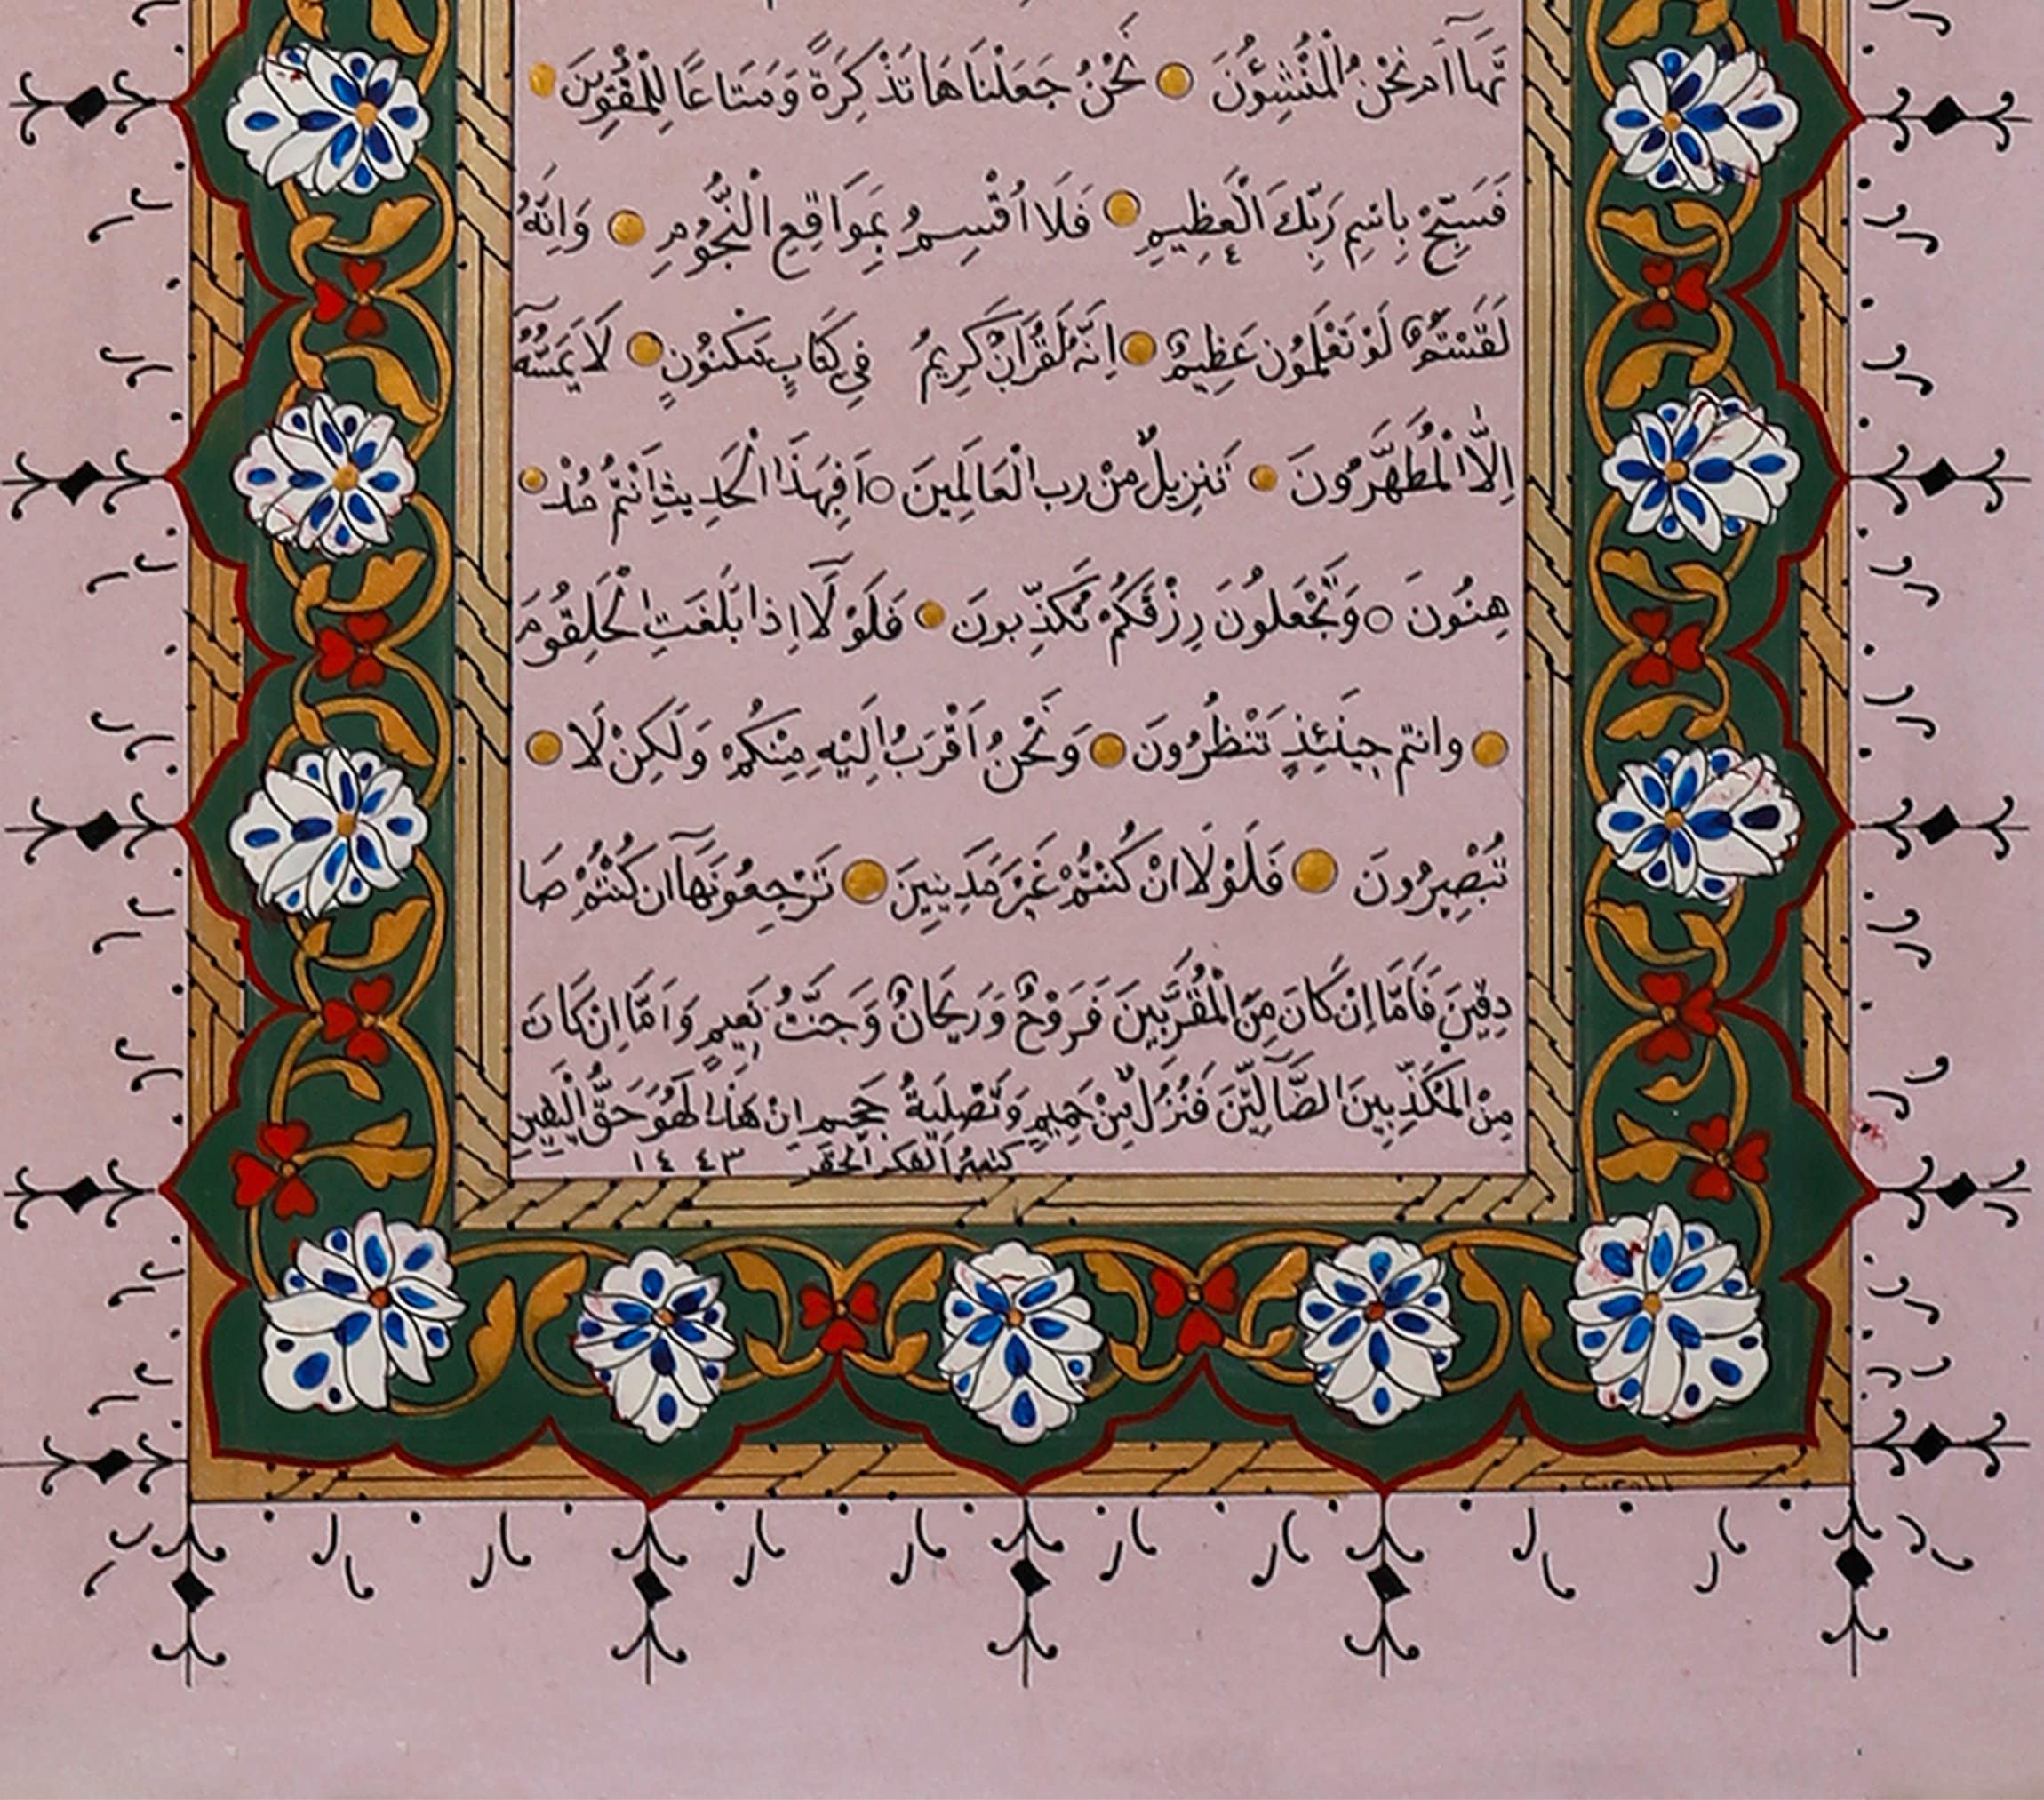 تَهَآ اَمْ نَحْنُ الْمُنْشِؤُنَ نَحْنُ جَعَلْنَاهَا تَذْكِرَةً وَمَتَاعًا لِلْمُقْوِينَ
فَسَبِّحْ بِاسْمِ رَبِّكَ الْعَظِيمِ فَلَا اُقْسِمُ بِمَوَاقِعِ النُّجُومِ وَاِنَّهُ
لَقَسَمٌ لَوْ تَعْلَمُونَ عَظِيمٌ اِنَّهُ لَقُرْاٰنٌ كَرِيمٌ فِي كِتَابٍ مَكْنُونٍ لَا يَمَسُّهُٓ
اِلَّا الْمُطَهَّرُونَ تَنْزِيلٌ مِنْ رب الْعَالَمِينَ اَفَبِهٰذَا الْحَدِيثِ اَنْتُمْ مُدْ
هِنُونَ وَتَجْعَلُونَ رِزْقَكُمْ تُكَذِّبونَ فَلَوْلَٓا اِذَا بَلَغَتِ الْحُلْقُومَ
وانتم حِينَئِذٍ تَنْظُرُونَ وَنَحْنُ اَقْرَبُ اِلَيْهِ مِنْكُمْ وَلٰكِنْ لَا
تُبْصِرُونَ فَلَوْلَا انْ كُنْتُمْ غَيْرَ مَدِينِينَ تَرْجِعُونَهَٓا اِن كُنْتُمْ صَا
دِقِينَ فَاَمَّا اِنْ كَانَ مِنَ الْمُقَرَّبِينَ فَرَوْحٌ وَرَيْحَانٌ وَجَنَّتُ نَعِيمٍ وَاَمَّا اِنْ كَانَ
مِنَ الْمُكَذِّبِينَ الضَّٓالِّينَ فَنُزُلٌ مِنْ حَمِيمٍ وَتَصْلِيَةُ جَحِيمٍ اِنْ هٰذَا لَهُوَ حَقُّ الْيَقِينِ
كتبه الفقير الحقير ١٤٤٣